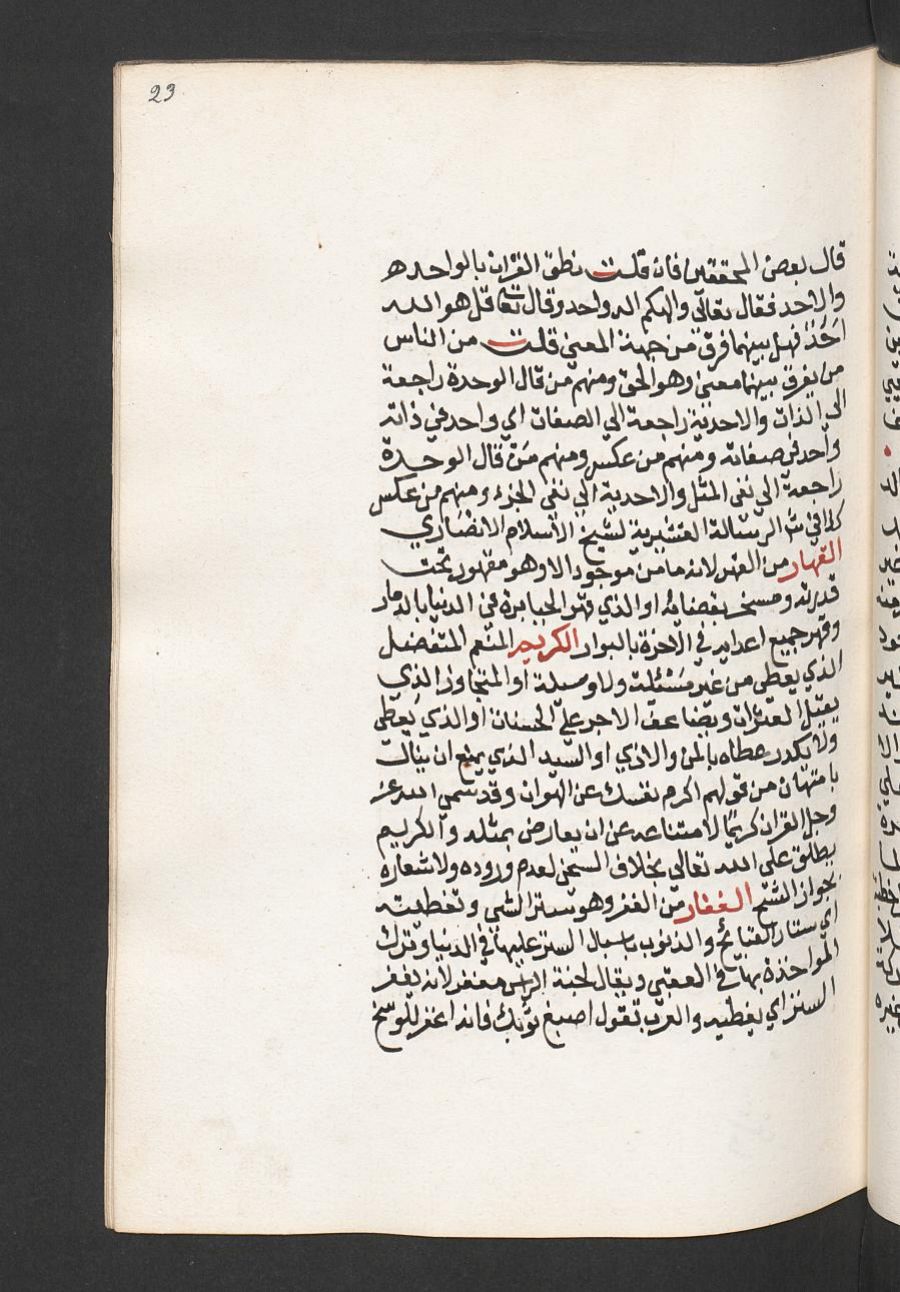 23
قال بعض المحققين فان قلت نطق القران بالواحد
والاحد فقال تعالى والهكم اله واحد وقال تعا قل هو الله
احد فهل بينهما فرق من جهة المعنى قلت من الناس
من يفرق بينهما معنى وهو الحق ومنهم من قال الوحدة راجعة
الى الذات والاحدية راجعة الى الصفات اي واحد في ذاته
واحد في صفاته ومنهم من عكس ومنهم من قال الوحدة
راجعة الى نفي المثل والاحدية الى نفي الجزء ومنهم من عكس
كذا في شر الرسالة القشيرية لشيخ الاسلام الانصاري
القهار من القهر لانه ما من موجود الا وهو مقهور تحت
قدرته ومسخر بقضائه او الذي قهر الجبابرة في الدنيا بالدمار
وقهر جميع اعدايه في الاخرة بالبوار الكريم المنعم المتفضل
الذي يعطي من غير مسئلة ولا وسيلة او المتجاوز الذي
يقيل العثرات ويضاعف الاجر على الحسنات او الذي يعطي
ولا يكدر عطاه بالمن والاذي او السيد الذي يمنع ان ينال
بامتهان من قولهم اكرم نفسك عن الهوان وقد سمي الله عز
وجل القران كريما لامتناعه عن ان يعارض بمثله والكريم
يطلق على الله تعالى بخلاف السخى لعدم وروده ولاشعاره
بجواز الشح الغفار من الغفر وهو ستر الشي وتغطيته
اي ستار القبائح والذنوب باسبال الستر عليها في الدنيا وترك
المواخذة بها في العقبى ويقال لجنة الراس مغفر لانه يغفر
الستر اي يغطيه والعرب تقول اصبغ ثوبك فانه اغفر للوسخ